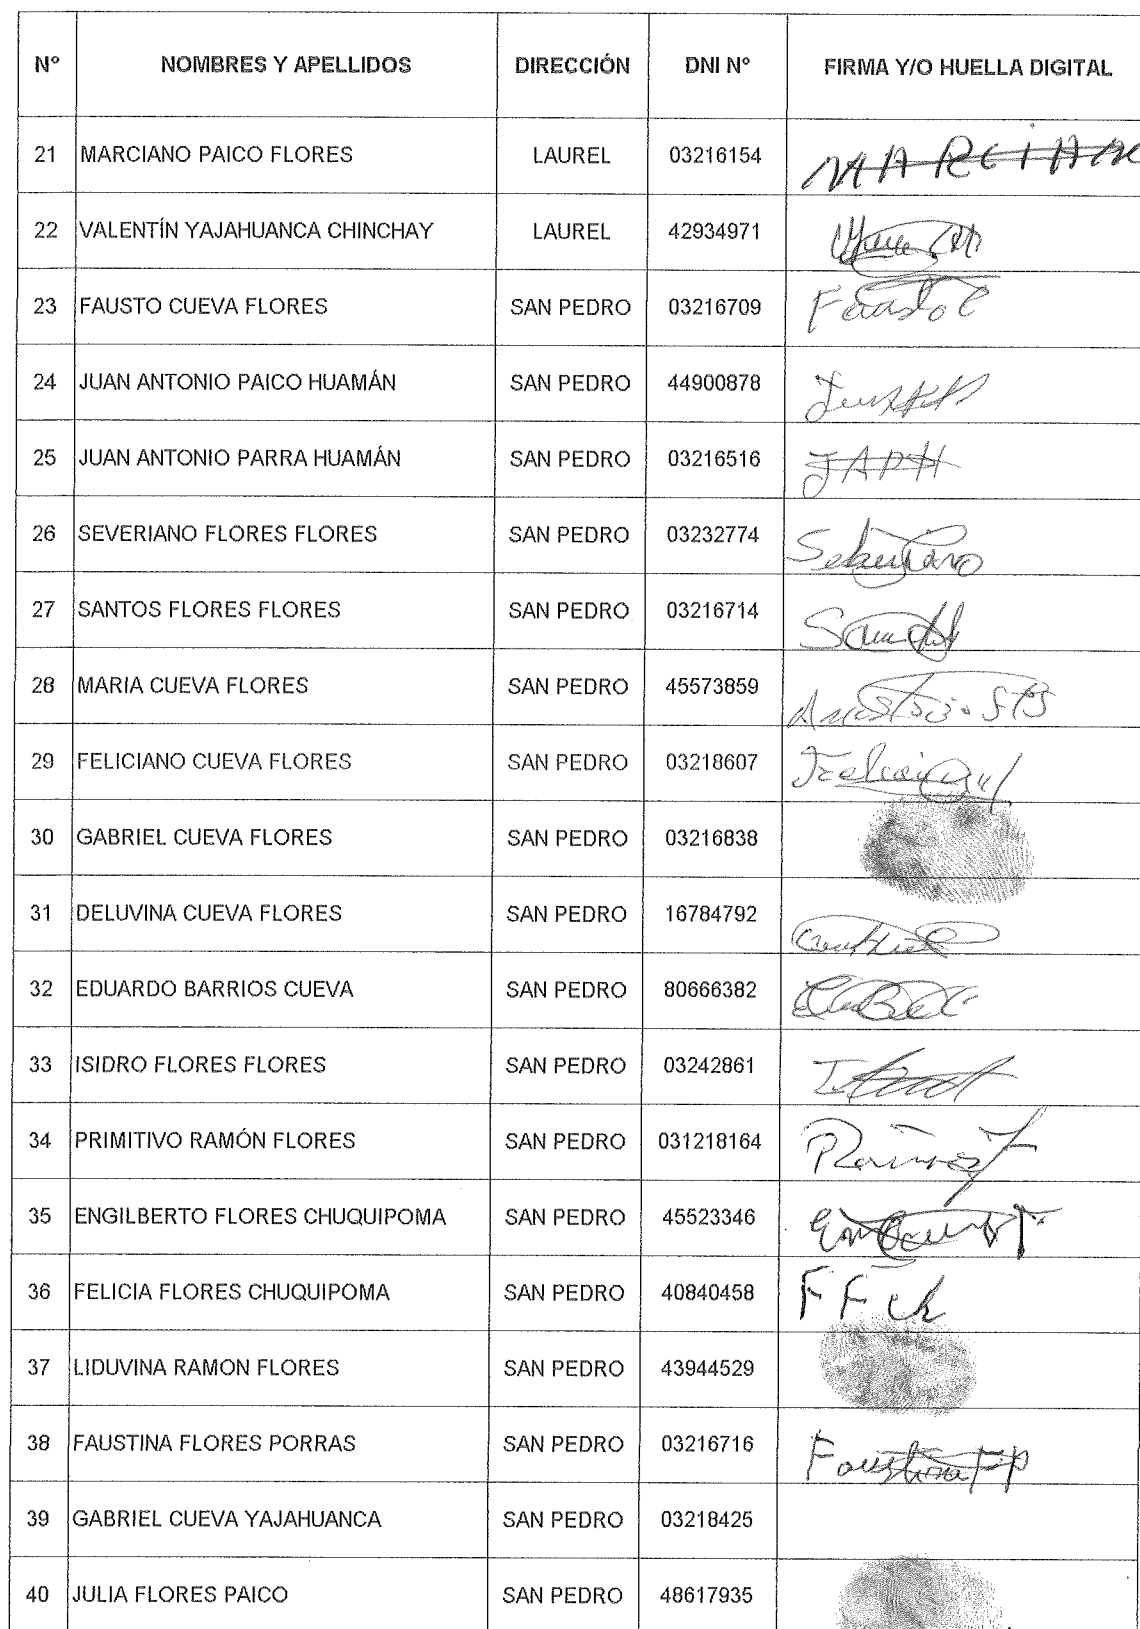 Nº NOMBRES Y APELLIDOS DIRECCIÓN DNI Nº FIRMA Y/O HUELLA DIGITAL
21 MARCIANO PAICO FLORES LAUREL 03216154 MARCIANO
22 VALENTÍN YAJAHUANCA CHINCHAY LAUREL 42934971
23 FAUSTO CUEVA FLORES SAN PEDRO 03216709 Fausto C
24 JUAN ANTONIO PAICO HUAMÁN SAN PEDRO 44900878
25 JUAN ANTONIO PARRA HUAMÁN SAN PEDRO 03216516 JAPH
26 SEVERIANO FLORES FLORES SAN PEDRO 03232774
27 SANTOS FLORES FLORES SAN PEDRO 03216714
28 MARIA CUEVA FLORES SAN PEDRO 45573859
29 FELICIANO CUEVA FLORES SAN PEDRO 03218607
30 GABRIEL CUEVA FLORES SAN PEDRO 03216838
31 DELUVINA CUEVA FLORES SAN PEDRO 16784792
32 EDUARDO BARRIOS CUEVA SAN PEDRO 80666382
33 ISIDRO FLORES FLORES SAN PEDRO 03242861
34 PRIMITIVO RAMÓN FLORES SAN PEDRO 031218164
35 ENGILBERTO FLORES CHUQUIPOMA SAN PEDRO 45523346
36 FELICIA FLORES CHUQUIPOMA SAN PEDRO 40840458 F F ch
37 LIDUVINA RAMON FLORES SAN PEDRO 43944529
38 FAUSTINA FLORES PORRAS SAN PEDRO 03216716 Faustina FP
39 GABRIEL CUEVA YAJAHUANCA SAN PEDRO 03218425
40 JULIA FLORES PAICO SAN PEDRO 48617935